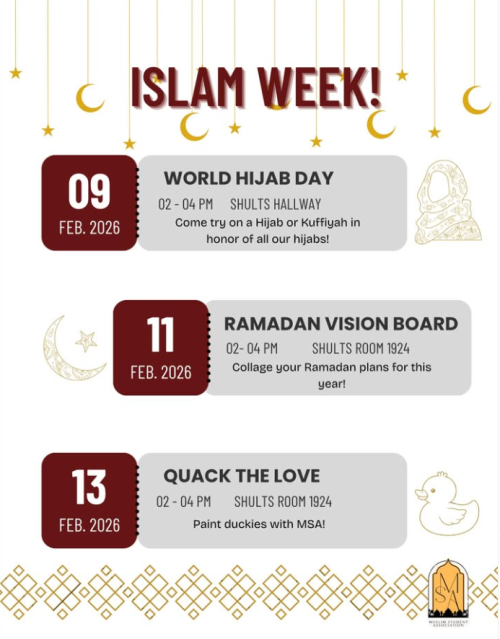 ISLAM WEEK!
09
FEB. 2026
WORLD HIJAB DAY
02 - 04 PM SHULTS HALLWAY
Come try on a Hijab or Kuffiyah in
honor of all our hijabs!
11
FEB. 2026
RAMADAN VISION BOARD
02- 04 PM SHULTS ROOM 1924
Collage your Ramadan plans for this
year!
13
FEB. 2026
QUACK THE LOVE
02 - 04 PM SHULTS ROOM 1924
Paint duckies with MSA!
MSA
MUSLIM STUDENT
ASSOCIATION